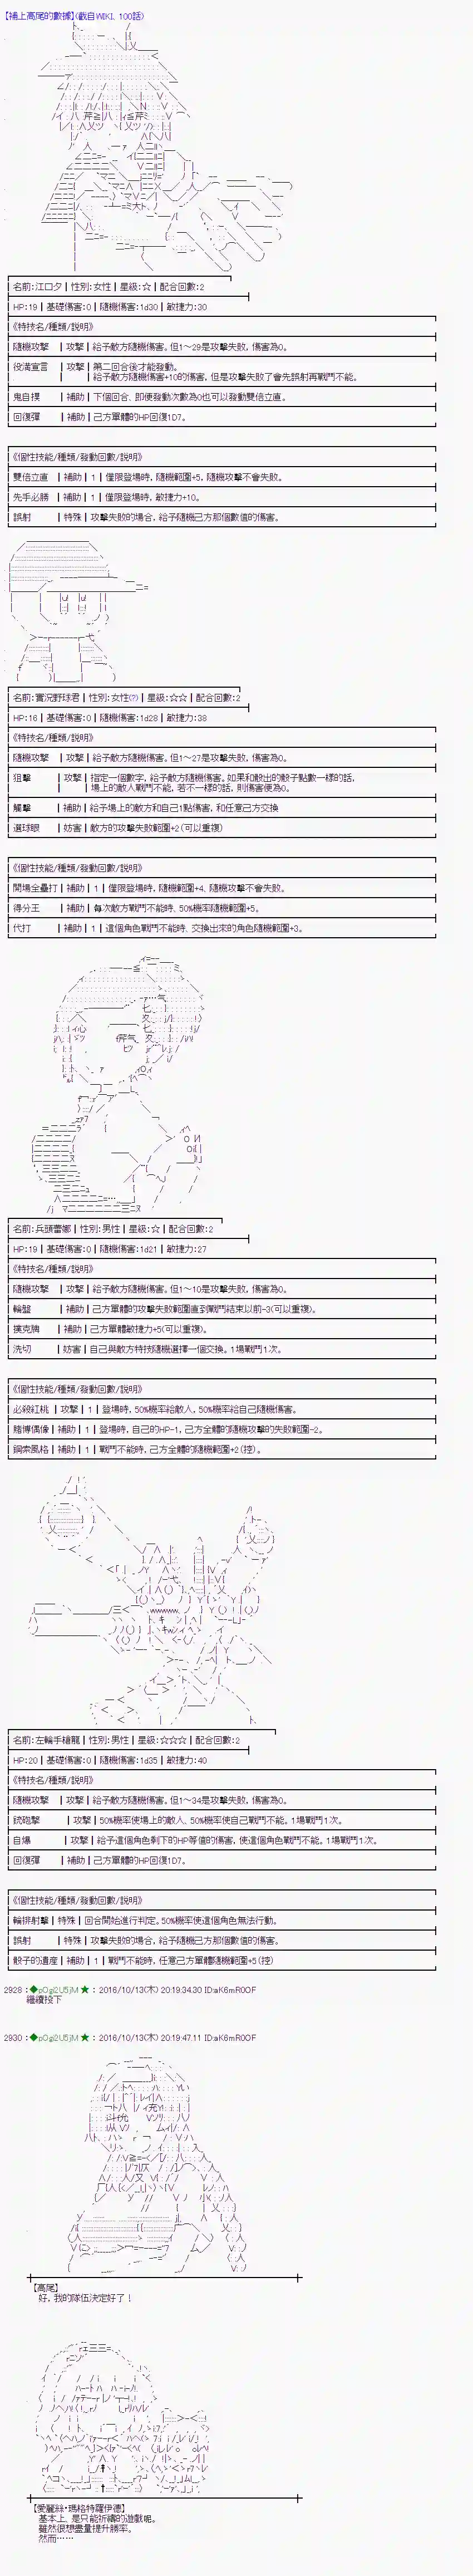 【補上高尾的數據】(截自WIKI, 100話)
名前:江口夕｜性別:女性｜星級:☆｜配合回數:2
HP:19｜基礎傷害:0｜隨機傷害:1d30｜敏捷力:30
《特技名/種類/說明》
隨機攻擊｜攻擊｜給予敵方隨機傷害。但1～29是攻擊失敗，傷害為0。
役滿宣言｜攻擊｜第二回合後才能發動。
給予敵方隨機傷害+10的傷害，但是攻擊失敗了會先誤射再戰鬥不能。
鬼自摸｜補助｜下個回合、即便發動次數為0也可以發動雙倍立直。
回復彈｜補助｜己方單體的HP回復1D7。
《個性技能/種類/發動回數/說明》
雙倍立直｜補助｜1｜僅限登場時，隨機範圍+5，隨機攻擊不會失敗。
先手必勝｜補助｜1｜僅限登場時，敏捷力+10。
誤射｜特殊｜攻擊失敗的場合，給予隨機己方那個數值的傷害。
名前:實況野球君｜性別:女性(?)｜星級:☆☆｜配合回數:2
HP:16｜基礎傷害:0｜隨機傷害:1d28｜敏捷力:38
《特技名/種類/說明》
隨機攻擊｜攻擊｜給予敵方隨機傷害。但1～27是攻擊失敗，傷害為0。
狙擊｜攻擊｜指定一個數字，給予敵方隨機傷害。如果和骰出的骰子點數一樣的話，
場上的敵人戰鬥不能，若不一樣的話，則傷害便為0。
觸擊｜補助｜給予場上的敵方和自己1點傷害，和任意己方交換
選球眼｜妨害｜敵方的攻擊失敗範圍+2(可以重複)
《個性技能/種類/發動回數/說明》
開場全壘打｜補助｜1｜僅限登場時，隨機範圍+4、隨機攻擊不會失敗。
得分王｜補助｜每次敵方戰鬥不能時、50%機率隨機範圍+5。
代打｜補助｜1｜這個角色戰鬥不能時、交換出來的角色隨機範圍+3。
名前:兵頭蕾娜｜性別:男性｜星級:☆｜配合回數:2
HP:19｜基礎傷害:0｜隨機傷害:1d21｜敏捷力:27
《特技名/種類/說明》
隨機攻擊｜攻擊｜給予敵方隨機傷害。但1～10是攻擊失敗，傷害為0。
輪盤｜補助｜己方單體的攻擊失敗範圍直到戰鬥結束以前-3(可以重複)。
撲克牌｜補助｜己方單體敏捷力+5(可以重複)。
洗切｜妨害｜自己與敵方特技隨機選擇一個交換。1場戰鬥1次。
《個性技能/種類/發動回數/說明》
必殺紅桃｜攻擊｜1｜登場時，50%機率給敵人，50%機率給自己隨機傷害。
賭博偶像｜補助｜1｜登場時，自己的HP-1，己方全體的隨機攻擊的失敗範圍-2。
鋼索風格｜補助｜1｜戰鬥不能時、己方全體的隨機範圍+2(控)。
名前:左輪手槍龍｜性別:男性｜星級:☆☆☆｜配合回數:2
HP:20｜基礎傷害:0｜隨機傷害:1d35｜敏捷力:40
《特技名/種類/說明》
隨機攻擊｜攻擊｜給予敵方隨機傷害。但1～34是攻擊失敗，傷害為0。
銃砲擊｜攻擊｜50%機率使場上的敵人、50%機率使自己戰鬥不能。1場戰鬥1次。
自爆｜攻擊｜給予這個角色剩下的HP等值的傷害，使這個角色戰鬥不能。1場戰鬥1次。
回復彈｜補助｜己方單體的HP回復1D7。
《個性技能/種類/發動回數/說明》
輪排射擊｜特殊｜回合開始進行判定。50%機率使這個角色無法行動。
誤射｜特殊｜攻擊失敗的場合，給予隨機己方那個數值的傷害。
骰子的遺産｜補助｜1｜戰鬥不能時，任意己方單體隨機範圍+5(控)
2928 :◆pOgi2U5jM ★ : 2016/10/13(木) 20:19:34.30 ID:aK6mR0OF
繼續投下
2930 :◆pOgi2U5jM ★ : 2016/10/13(木) 20:19:47.11 ID:aK6mR0OF
【高尾】
好，我的隊伍決定好了！
【愛麗絲・瑪格特羅伊德】
基本上、是只能祈禱的遊戲呢。
雖然很想盡量提升勝率。
然而……